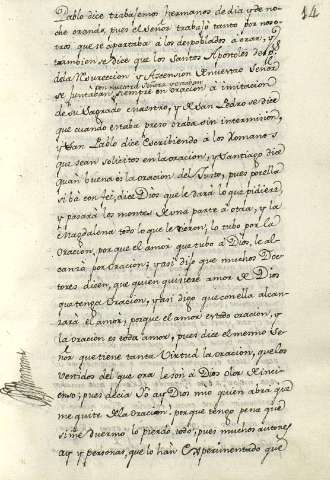 14
Pablo dice trabajemos hermanos de dia, y de no-
che orando, pues el Señor trabajó tanto por noso-
tros que se apartaba a los despoblados a orar, y
tambien se dice que los Santos Apostoles
dela Resureccion y Ascension Nuestro Señor
con nuestra Señora oraban
se juntaban siempre en oracion a imitacion
de su Sagrado maestro, y San Pedro se dice
que cuando estaba preso oraba sin intermision,
y San Pablo dice escribiendo a los Romanos
que sean solicitos en la oracion, y Santiago dice
quan buena es la oracion del Justo, pues por ella
si ba con fee, dice Dios que le dará lo que pidiere,
y pasará los montes de una parte a otra, y la
Magdalena todo lo que le dieron, lo tubo por la
Oracion, porque el amor que tubo a Dios, le al-
canzo por Oracion; y asi dijo que muchos Doc-
tores dicen, que quien quisiere amor de Dios
que tenga Oracion, y asi digo que con ella alcan-
zará el amor, porque el amor es todo oracion, y
la oracion es toda amor, pues dice el mesmo Se-
ñor que tiene tanta Virtud la oracion, que los
vestidos del que ora le son a Dios olor de incien-
so; pues decia Yo ay Dios mio quien abrá que
me quite de la Oracion, porque tengo pena que
si me duermo lo pierdo todo, pues muchos autores
ay y personas, que lo han experimentado que